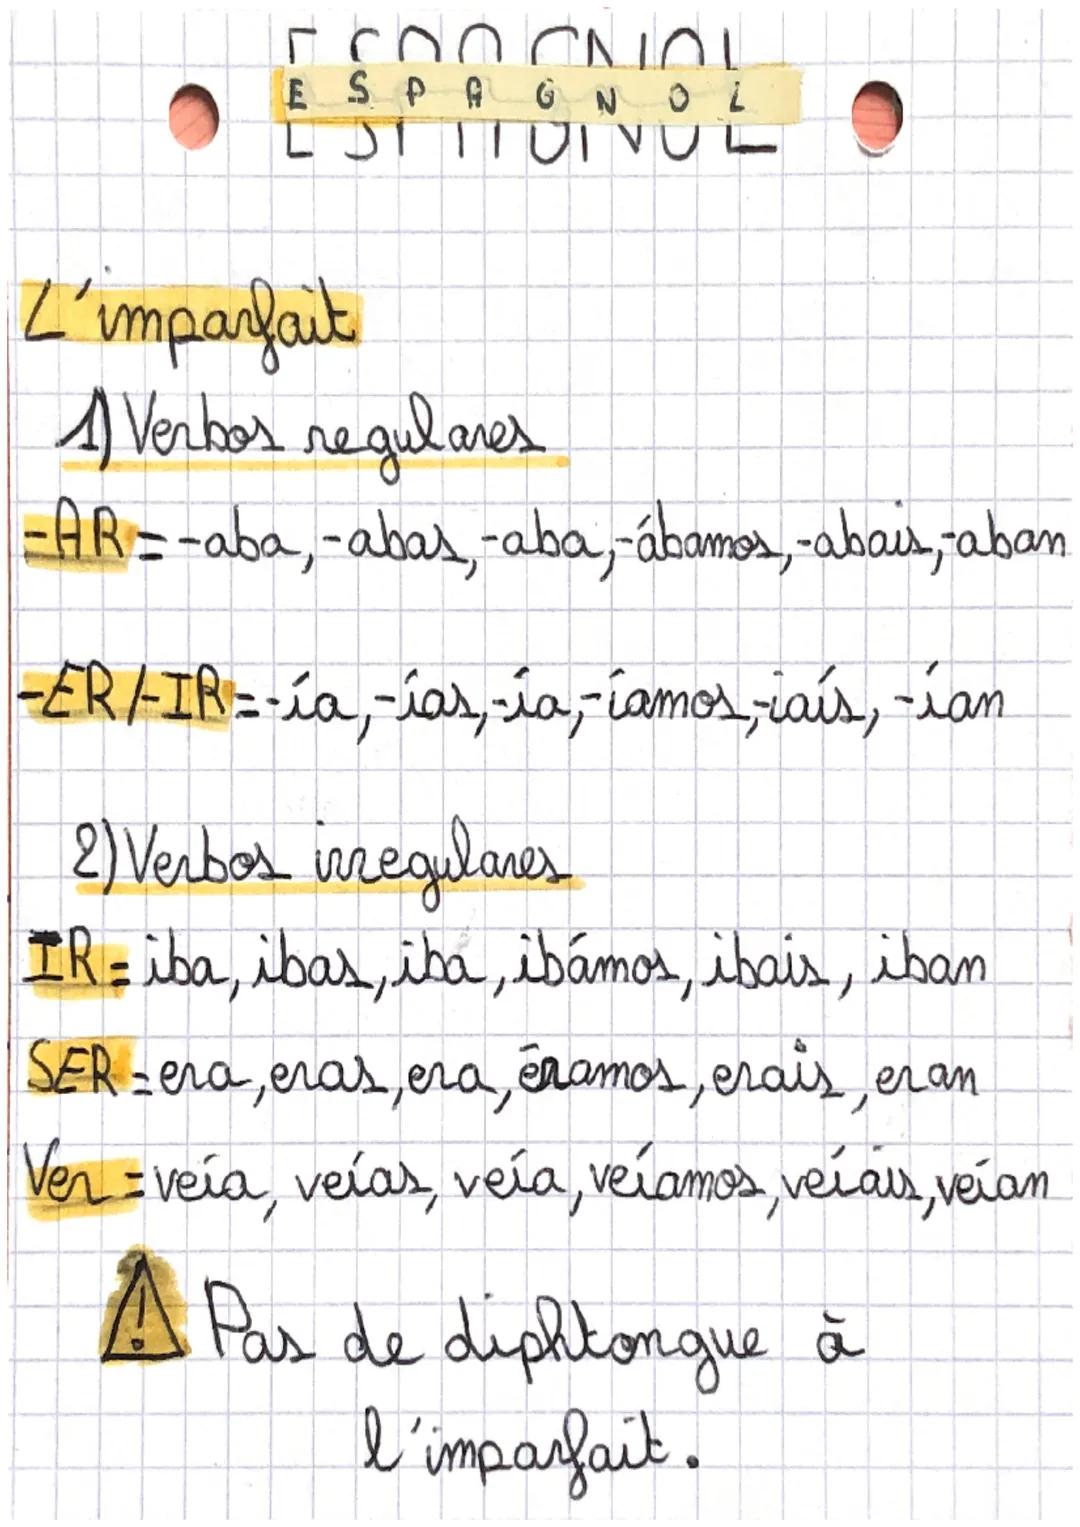 ESPAGNOL
E S P A G N O L
L'imparfait
1) Verbos regulares
-AR = -aba, -abas, -aba, -ábamos, -abais, -aban
-ER/-IR = -ía, -ías, -ía, -íamos, -iaís, -ían
2) Verbos irregulares
IR = iba, ibas, iba, ibámos, ibais, iban
SER = era, eras, era, éramos, erais, eran
Ver = veía, veías, veía, veíamos, veíais, veían
! Pas de diphtongue à
l'imparfait.